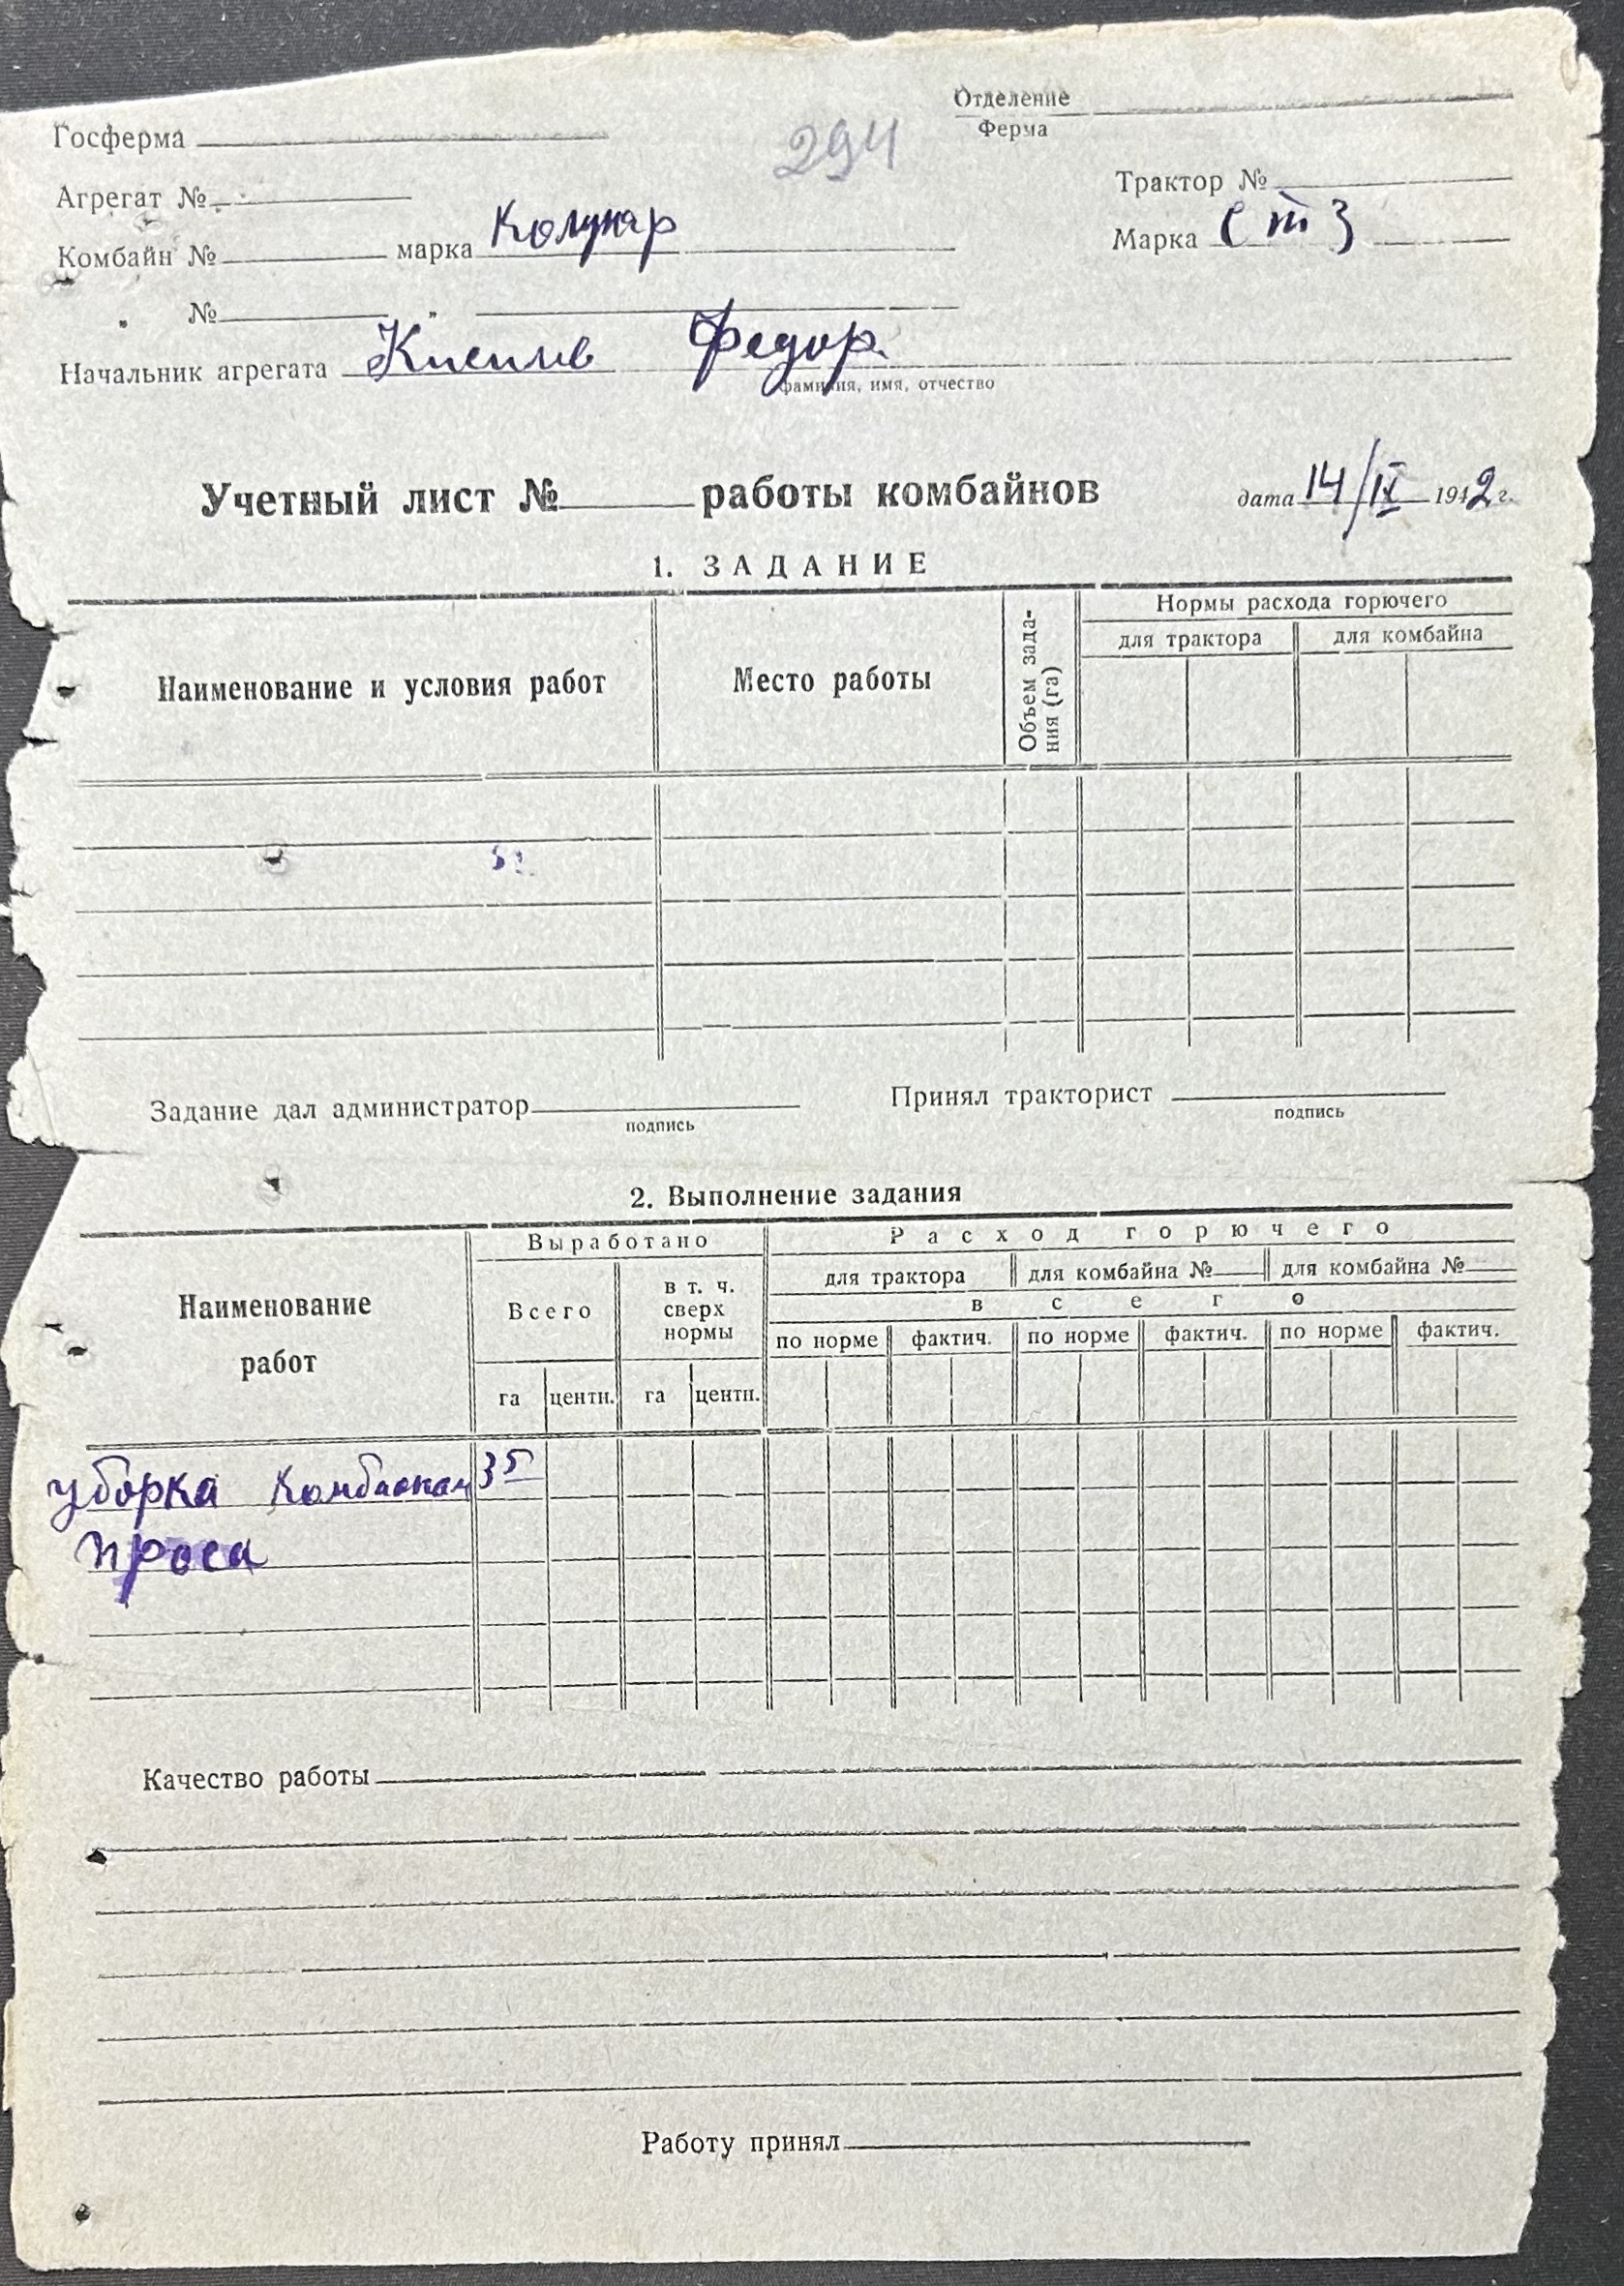 Отделение
Ферма
Госферма
294
Агрегат №
Трактор №
Комбайн № марка Колунар
Марка СТЗ
" № "
Начальник агрегата Федор.
фамилия, имя, отчество
Учетный лист № работы комбайнов
дата 14/IX 1942 г.
1. ЗАДАНИЕ
Наименование и условия работ
Место работы
Объем зада-
ния (га)
Нормы расхода горючего
для трактора для комбайна
Задание дал администратор
подпись
Принял тракторист
подпись
2. Выполнение задания
Наименование
работ
Выработано
Всего
в т. ч.
сверх
нормы
га центн. га центн.
Расход горючего
для трактора для комбайна № для комбайна №
всего
по норме фактич. по норме фактич. по норме фактич.
уборка 35
проса
Качество работы
Работу принял